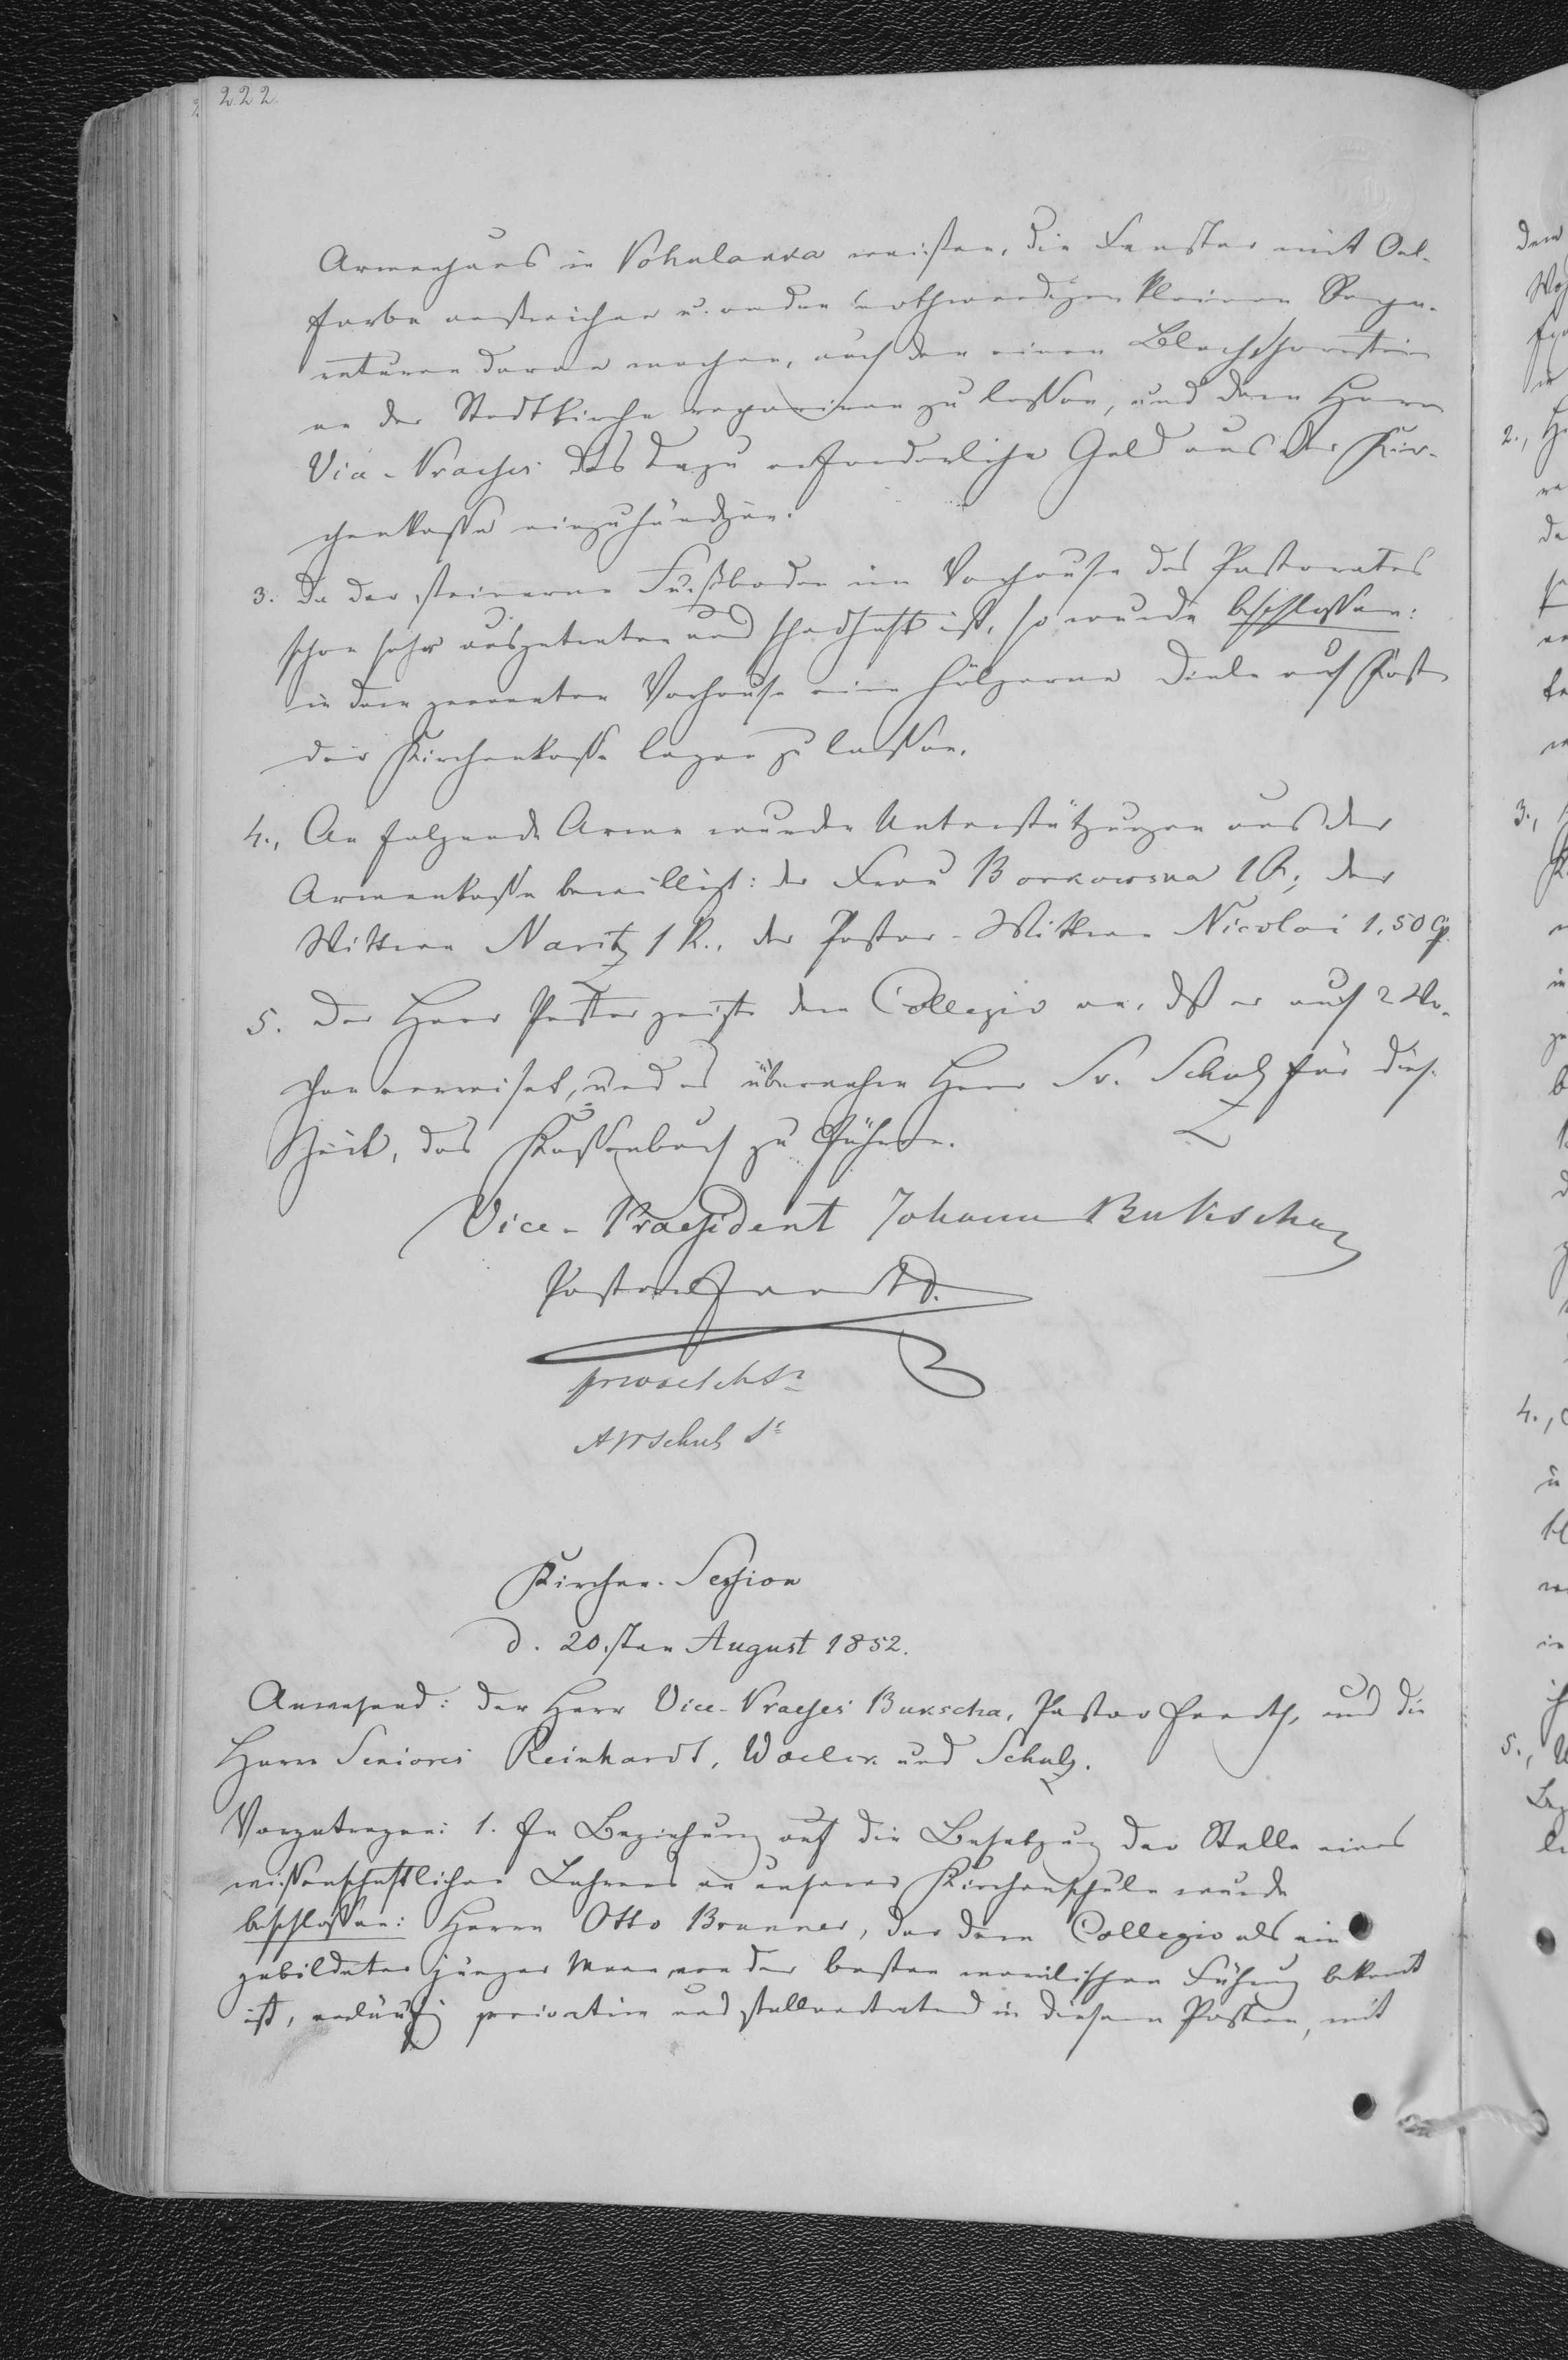 222.
Armenhaus in Pohulanka weißen, die Fenster mit Oel-
farbe anstreichen u. andre nothwendigen kleinen Repa-
raturen daran machen, auch den einen Blechschornstein
an der Stadtkirche repariren zu lassen, und dem Herrn
Vice-Praeses das dazu erforderliche Geld aus der Kir-
chenkasse einzuhändigen.
3. Da der steinerne Fußboden im Vorhause des Pastorates
schon sehr ausgetreten und schadhaft ist, so wurde beschlossen:
in dem genannten Vorhause eine hölzerne Diele auf Kosten
der Kirchenkasse legen zu lassen.
4., An folgende Arme wurde Unterstützungen aus der
Armenkasse bewilligt: der Frau Borkowska 1 R.; der
Wittwe Naritz 1 R., der Pastor-Wittwe Nicolai 1,50 Cp.
5. Der Herr Pastor zeigte dem Collegio an, daß er auf 2 Wo-
chen verreiset, und es übernahm Herr Sr. Schulz für diese
Zeit, das Kassenbuch zu führen.
Vice-Praesident Johann Bukscha
Pastor
A W Schulz Sr
Kirchen-Session
d. 20.sten August 1852.
Anwesend: der Herr Vice-Praeses Bukscha, Pastor und die
Herrn Seniores Reinhardt, Woelck und Schulz.
Vorgetragen: 1. In Beziehung auf die Besetzung der Stelle eines
wissenschaftlichen Lehrers an unserer Kirchenschule wurde
beschlossen: Herrn Otto Brunner, der dem Collegio als ein
gebildeter junger Mann von der besten moralischen Führung bekannt
ist, vorläufig privatim und stellvertretend in diesem Posten, mit